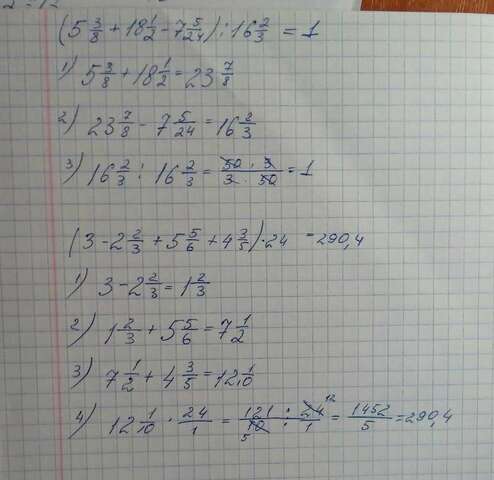 (5 3/8 + 18 1/2 - 7 5/24) : 16 2/3 = 1
1) 5 3/8 + 18 1/2 = 23 7/8
2) 23 7/8 - 7 5/24 = 16 2/3
3) 16 2/3 : 16 2/3 = 50 · 3 / 3 · 50 = 1
(3 - 2 2/3 + 5 5/6 + 4 3/5) · 24 = 290,4
1) 3 - 2 2/3 = 1 2/3
2) 1 2/3 + 5 5/6 = 7 1/2
3) 7 1/2 + 4 3/5 = 12 1/10
4) 12 1/10 · 24/1 = 121/10 5 : 24 12/1 = 1452/5 = 290,4